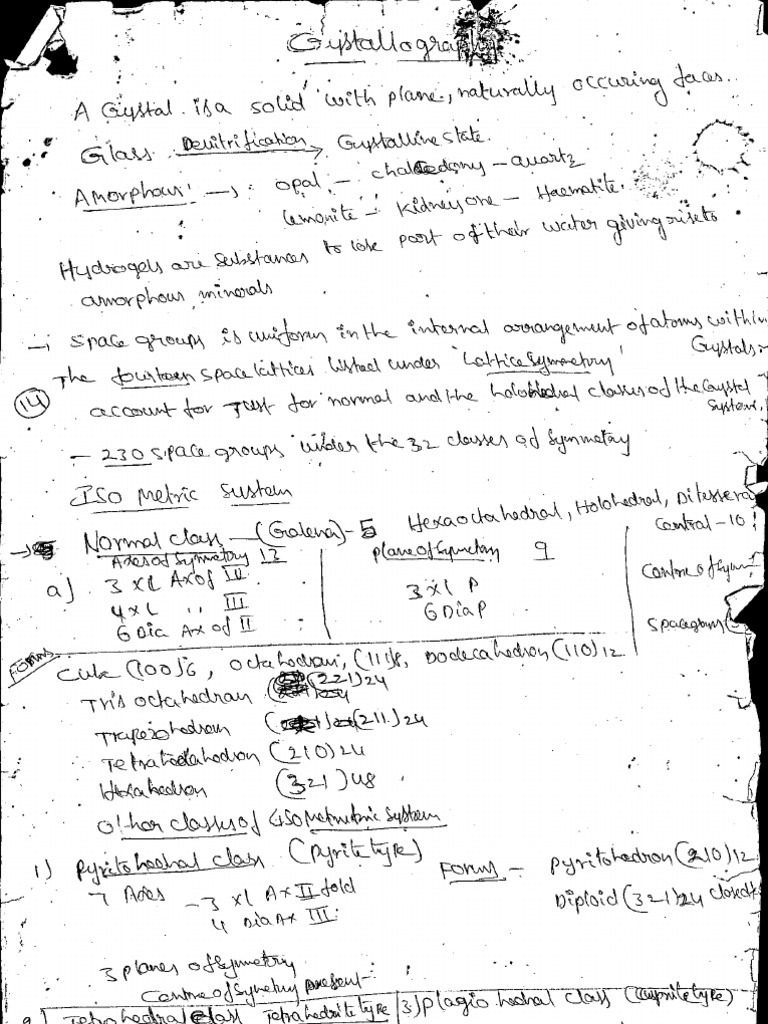 Crystallography
A Crystal is a solid with plane, naturally occuring faces.
Glass Devitrification → Crystalline state.
Amorphous: → opal - chalcedony - quartz
Lemonite - Kidneyore - Haematite.
Hydrogels are substances to lose part of their water giving rise to
amorphous minerals
→ Space groups is uniform in the internal arrangement of atoms within
Crystals:-
The fourteen space lattices listed under 'Lattice Symmetry'
(14) account for just for normal and the holohedral classes of the Crystal
System.
- 230 space groups under the 32 classes of Symmetry
ISO Metric System
→ Normal class - (Galena) - 5 Hexaoctahedral, Holohedral, Ditessera
Central - 10
Axes of Symmetry 13 Plane of Symmetry 9 Centre of Sym
a) 3 xl Ax of IV 3 xl P
4 xl " III 6 Dia P
6 Dia Ax of II Spacegroups
Forms
Cube (100)6, Octahedran, (111)8, Dodecahedron (110)12
Tris octahedran (221)24
Trapezohedram (211)24
Tetrahexahedron (210)24
Hexahedron (321)48
Other classes of ISO metmetric system
1) Pyritohedral class (Pyrite type) Forms - Pyritohedron (210)12
7 Axes - 3 xl Ax II fold Diploid (321)24 closed
4 Dia Ax III.
3 planes of Symmetry
Centre of Symetry present
2) Tetrahedral class Tetrahedrite type 3) Plagiohedral class (Cuprite type)